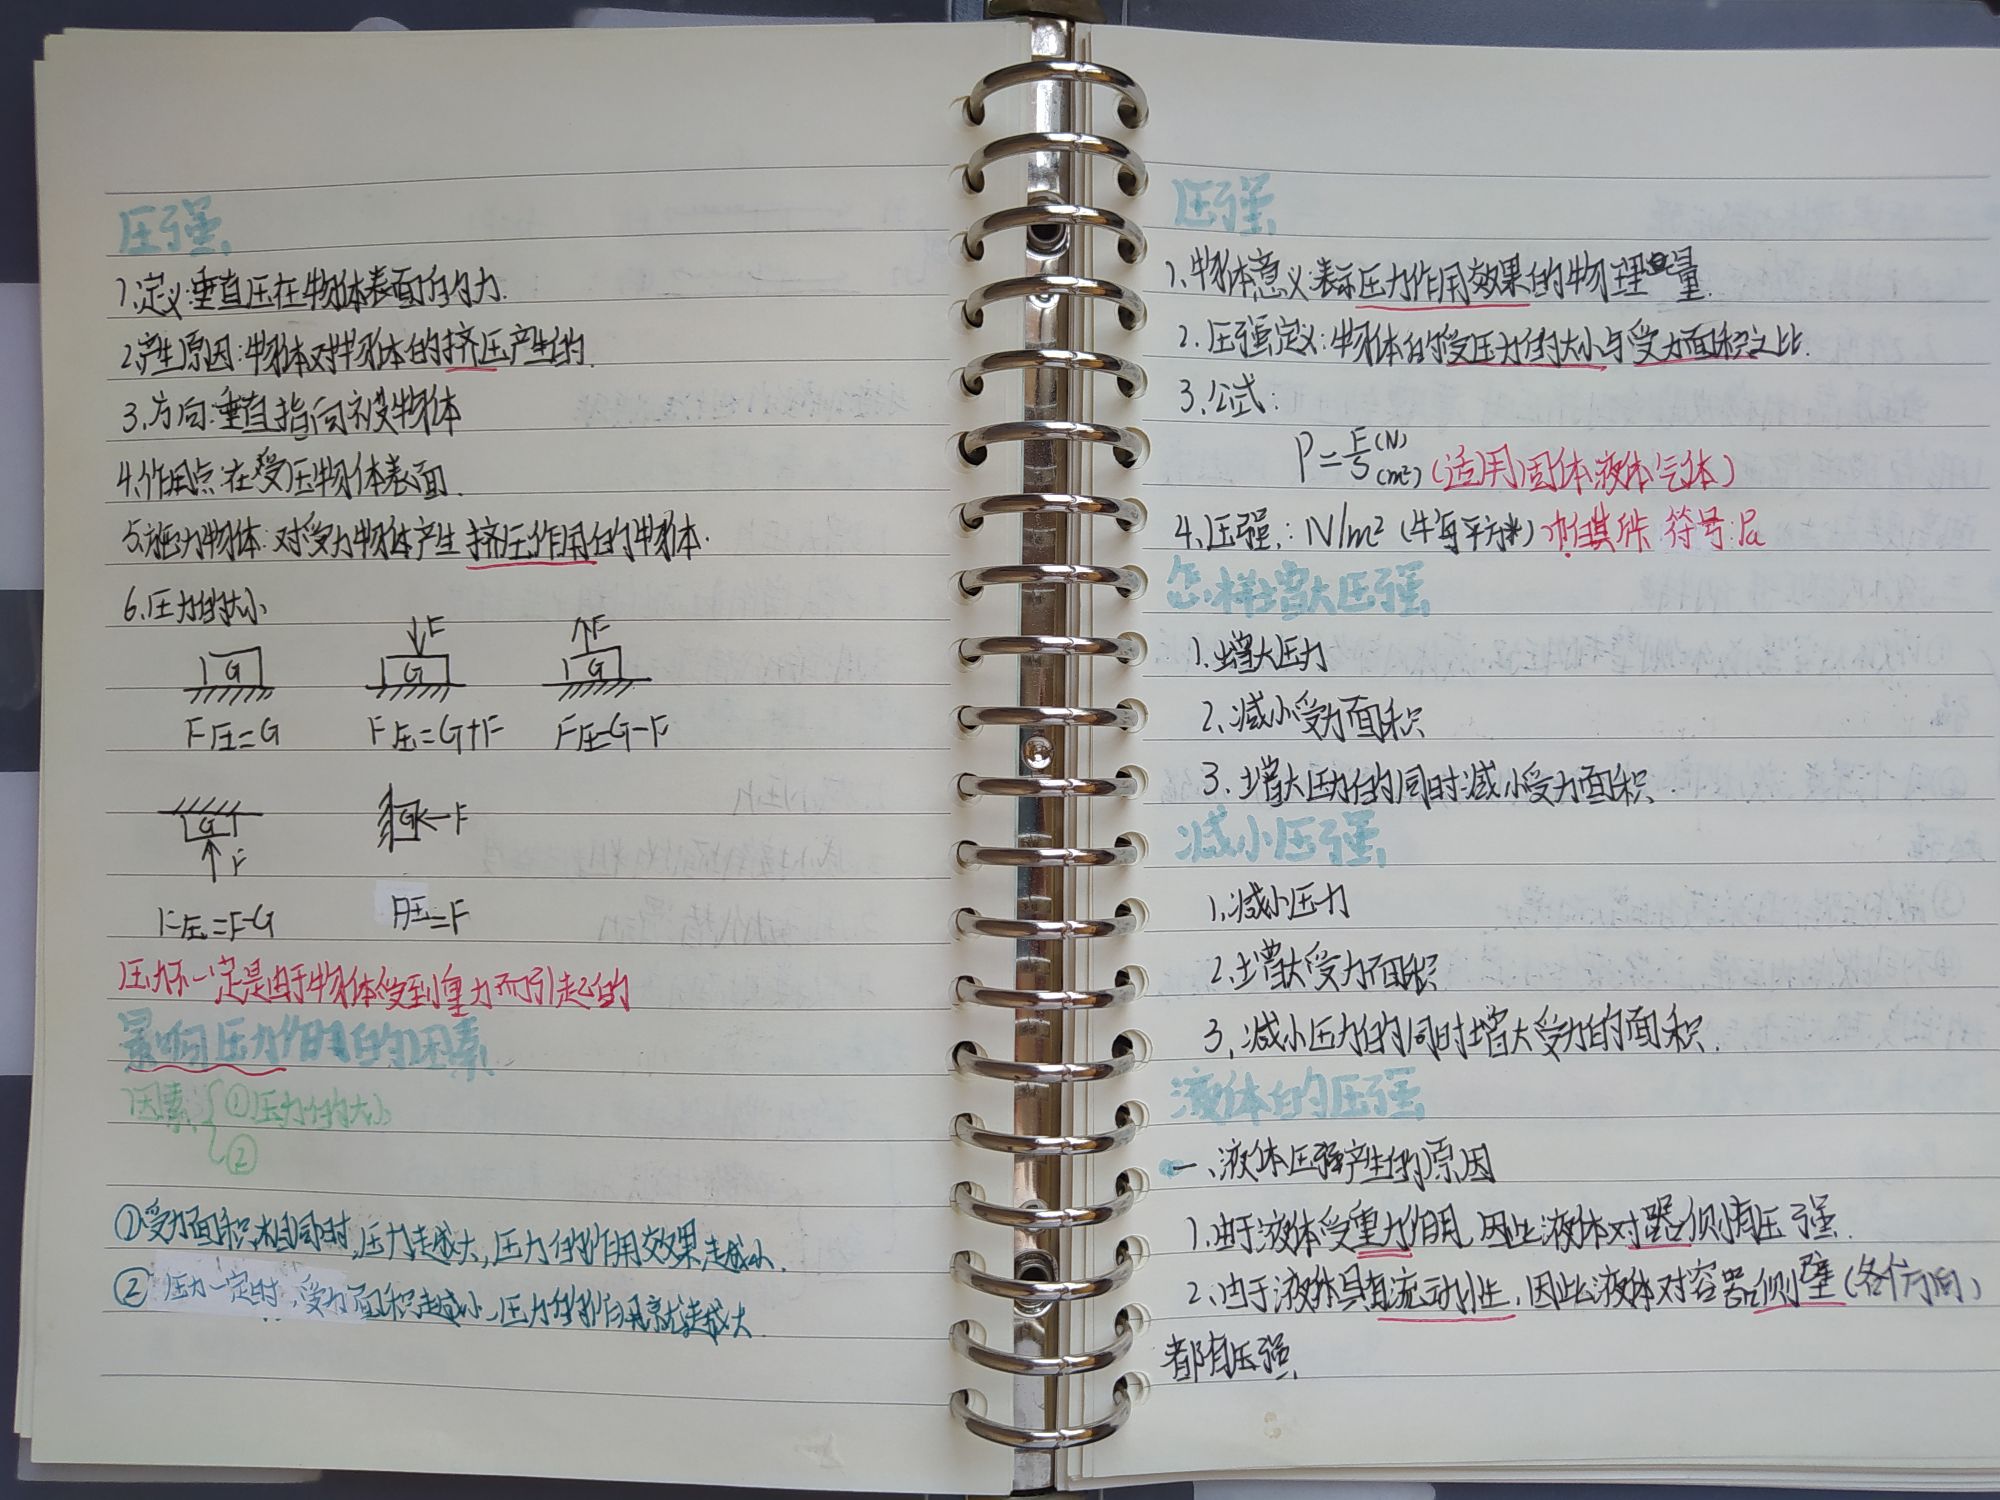 压强
1、定义:垂直压在物体表面的力.
2、产生原因:物体对物体的挤压产生的.
3、方向:垂直指向被物体
4、作用点:在受压物体表面.
5、施力物体:对受力物体产生挤压作用的物体.
6、压力的大小
G
F G
F G
F压=G
F压=G+F
F压=G-F
G F
G F
F压=F-G
F压=F
压力不一定是由于物体受到重力而引起的
影响压力作用的因素
因素 ①压力的大小
②
①受力面积相同时,压力越大,压力的作用效果越小.
②压力一定时,受力面积越小,压力的作用就越大
压强
1、物体意义:表示压力作用效果的物理量.
2、压强定义:物体的受压力的大小与受力面积之比.
3、公式:
P=F/S (N) (m²) (适用固体液体气体)
4、压强:N/m² (牛每平方米) 帕其斯 符号:Pa
怎样增大压强
1、增大压力
2、减小受力面积
3、增大压力的同时减小受力面积.
减小压强
1、减小压力
2、增大受力面积
3、减小压力的同时增大受力的面积.
液体的压强
一、液体压强产生的原因
1、由于液体受重力作用,因此液体对器侧有压强.
2、由于液体具有流动性,因此液体对容器侧壁(各个方向)
都有压强